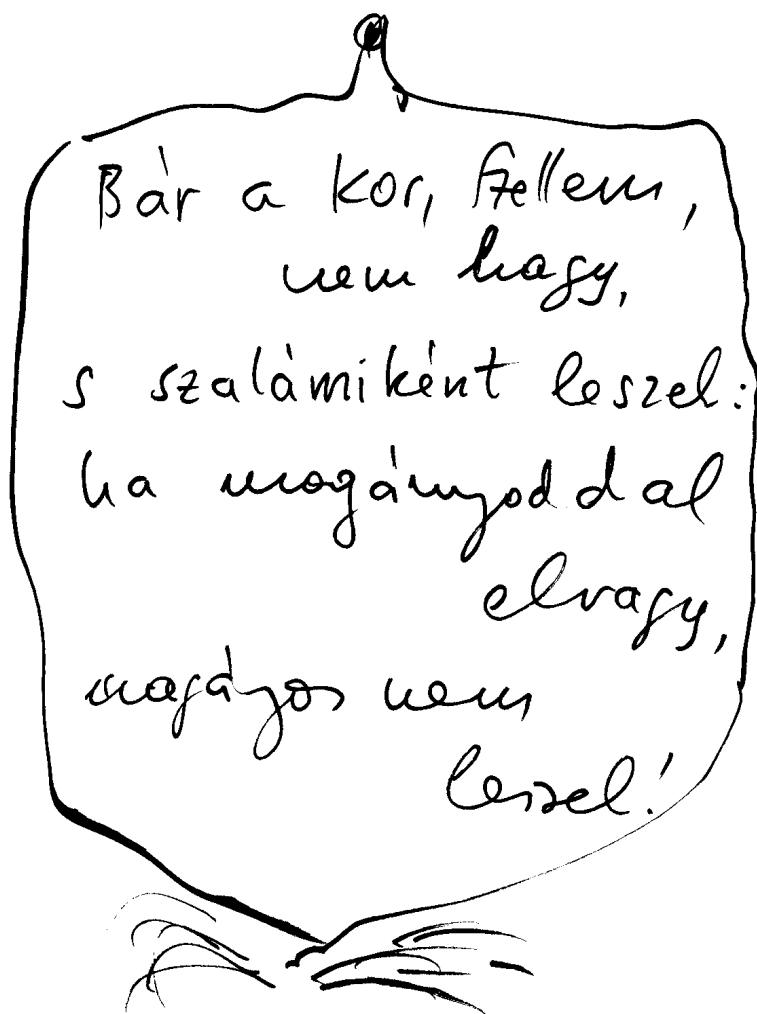 Bár a kor, szellem,
nem hagy,
s szalámiként leszel:
ha magányoddal
elvagy,
magányos nem
leszel!